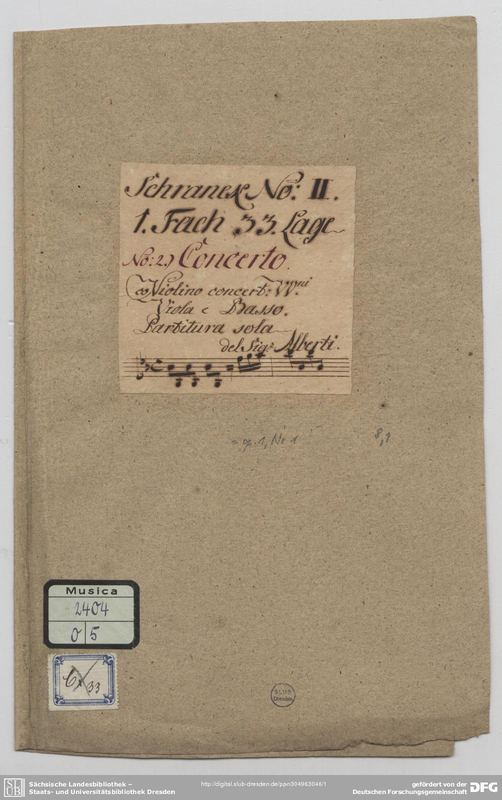 Schranck No: II.
1. Fach 33. Lage
No: 2.) Concerto.
co Violino concert: VV.ni
Viola e Basso.
Partitura sola
del Sig: Alberti.
= op. 1, Nr 1
8,9
Musica
2404
O|5
Cx 33
SLUB
Dresden
Sächsische Landesbibliothek –
Staats- und Universitätsbibliothek Dresden
http://digital.slub-dresden.de/ppn304963046/1
gefördert von der
Deutschen Forschungsgemeinschaft
DFG